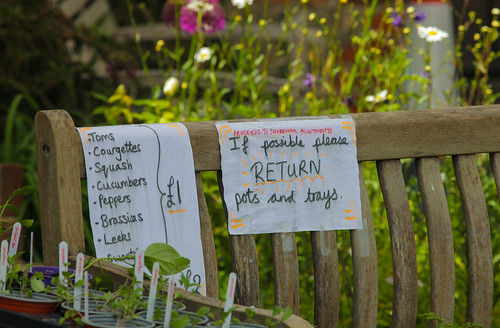 ·Toms
·Courgettes
·Squash
·Cucumbers
·Peppers
·Brassias
·Leeks
£1
PROCEEDS TO
If possible please
RETURN
pots and trays.